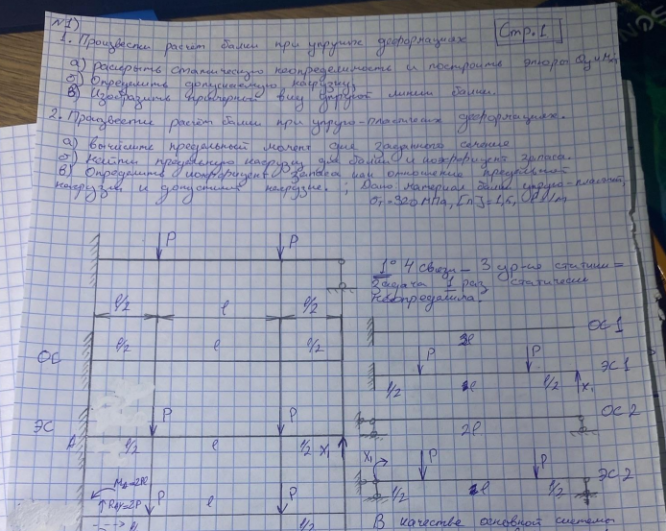 №1)
Стр. 1
1. Произвести расчёт балки при упругих деформациях
а) раскрыть статическую неопределимость и построить эпюры Qy и Mz
б) Определить допускаемую нагрузку,
в) Изобразить примерный вид упругой линии балки.
2. Произвести расчёт балки при упруго-пластичных деформациях.
а) вычислите предельный момент для заданного сечения
б) найти предельную нагрузку для балки и коэффициент запаса.
в) Определить коэффициент запаса как отношение предельной
нагрузки и допустимой нагрузке. ; Дано материал балки упруго-пластич,
σт = 320 МПа, [n] = 1,5,
P P
1° 4 связи – 3 ур-ие статики =
задача 1 раз статически
неопределима.
l/2 l l/2
ОС 1
2l
ОС l/2 l l/2
P P
ЭС 1
l/2 l l/2 X₁
P P
ОС 2
2l
ЭС
A l/2 l l/2 X₁
X₁ P P
ЭС 2
l/2 l l/2
P P
l
l/2
В качестве основной системы